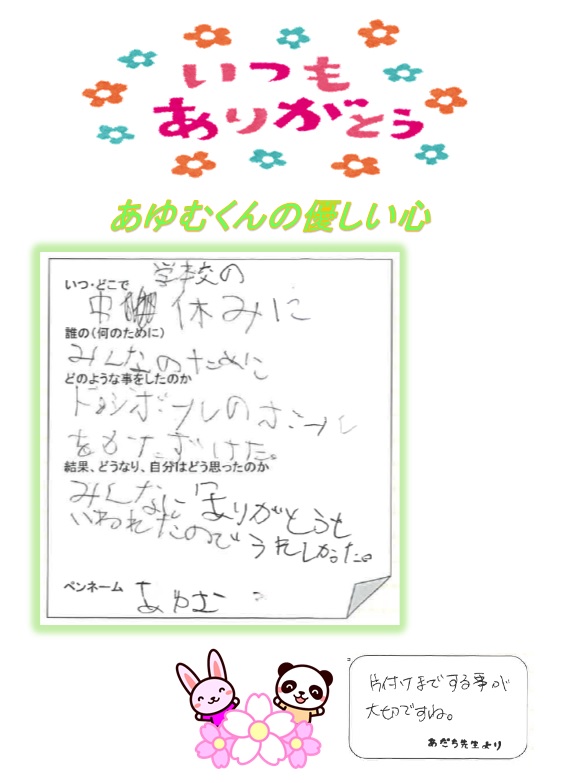 いつも
ありがとう
あゆむくんの優しい心
学校の
いつ・どこで
中休みに
誰の(何のために)
みんなのために
どのような事をしたのか
ドッジボールのボール
をかたづけた。
結果、どうなり、自分はどう思ったのか
みんなに「ありがとうと
いわれたので うれしかった。
ペンネーム
あゆむ
片付けまでする事が
大切ですね。
あだち先生より